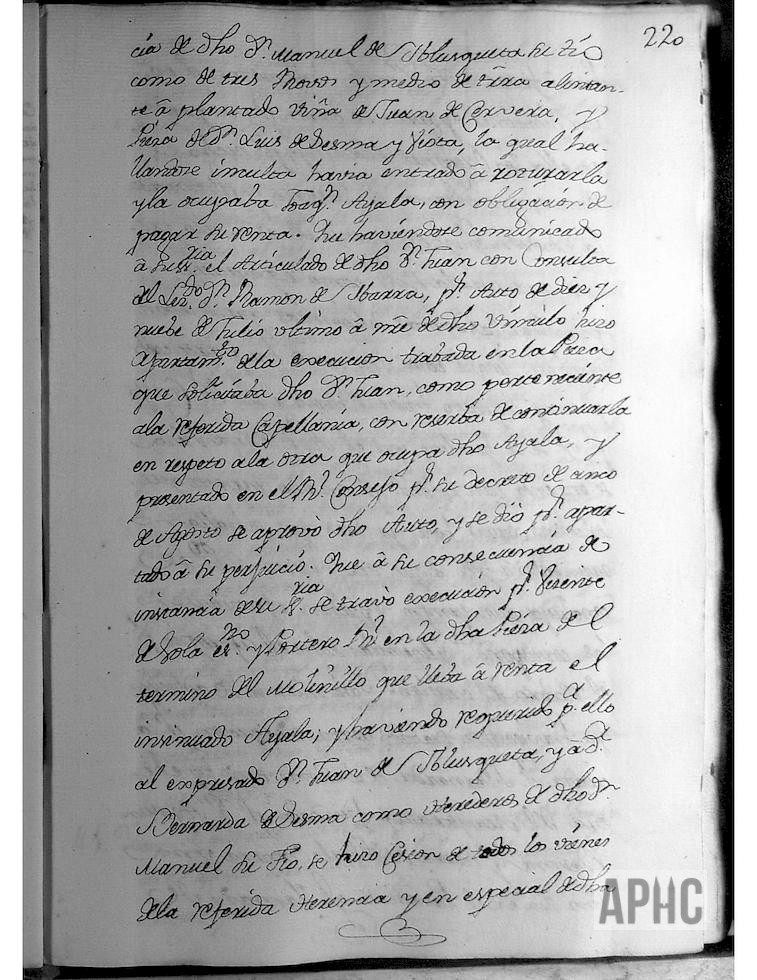 220
cia de dho Dn. Manuel de Oblusqueta su tio
como de tres Novos y medio de trra alintan-
te â plantado viña de Juan de Cervera, y
Pieza de Dn. Luis de Desma y Viota, la qual ha-
llandose inculta havia entrado â roturarla
y la ocupaba Joaqn. Ayala, con obligacion de
pagar su renta. Que haviendose comunicado
â su Sria. el Articulado de dho Dn. Juan con Consulta
del Lizdo. Dn. Ramon de Ibarra, pr. Auto de diez y
nuebe de Julio ultimo â nre. de dho Vinculo hizo
apartamto. de la execucion trabada en la Pieza
que solicitaba dho Dn. Juan, como perteneciente
a la referida Capellania, con reserba de continuarla
en respeto a la otra que ocupa dho Ayala, y
presentado en el Rl. Consejo pr. su decreto de cinco
de Agosto se aprovò dho Auto, y se diò pr. apar-
tado â su perjuicio. Que â su consecuencia de
instancia de su Sria. se travò execucion pr. Vizente
de Sola esno. y Portero Rl. en la dha Pieza del
termino del Molinillo que lleba â renta el
insinuado Ayala; y haviendo requerido pa. ello
al expresado Dn. Juan de Oblusqueta, y â Da.
Bernarda de Desma como Herederos de dho Dn.
Manuel su Tio, se hizo Cesion de todos los vienes
de la referida Herencia y en especial de dha
APHC